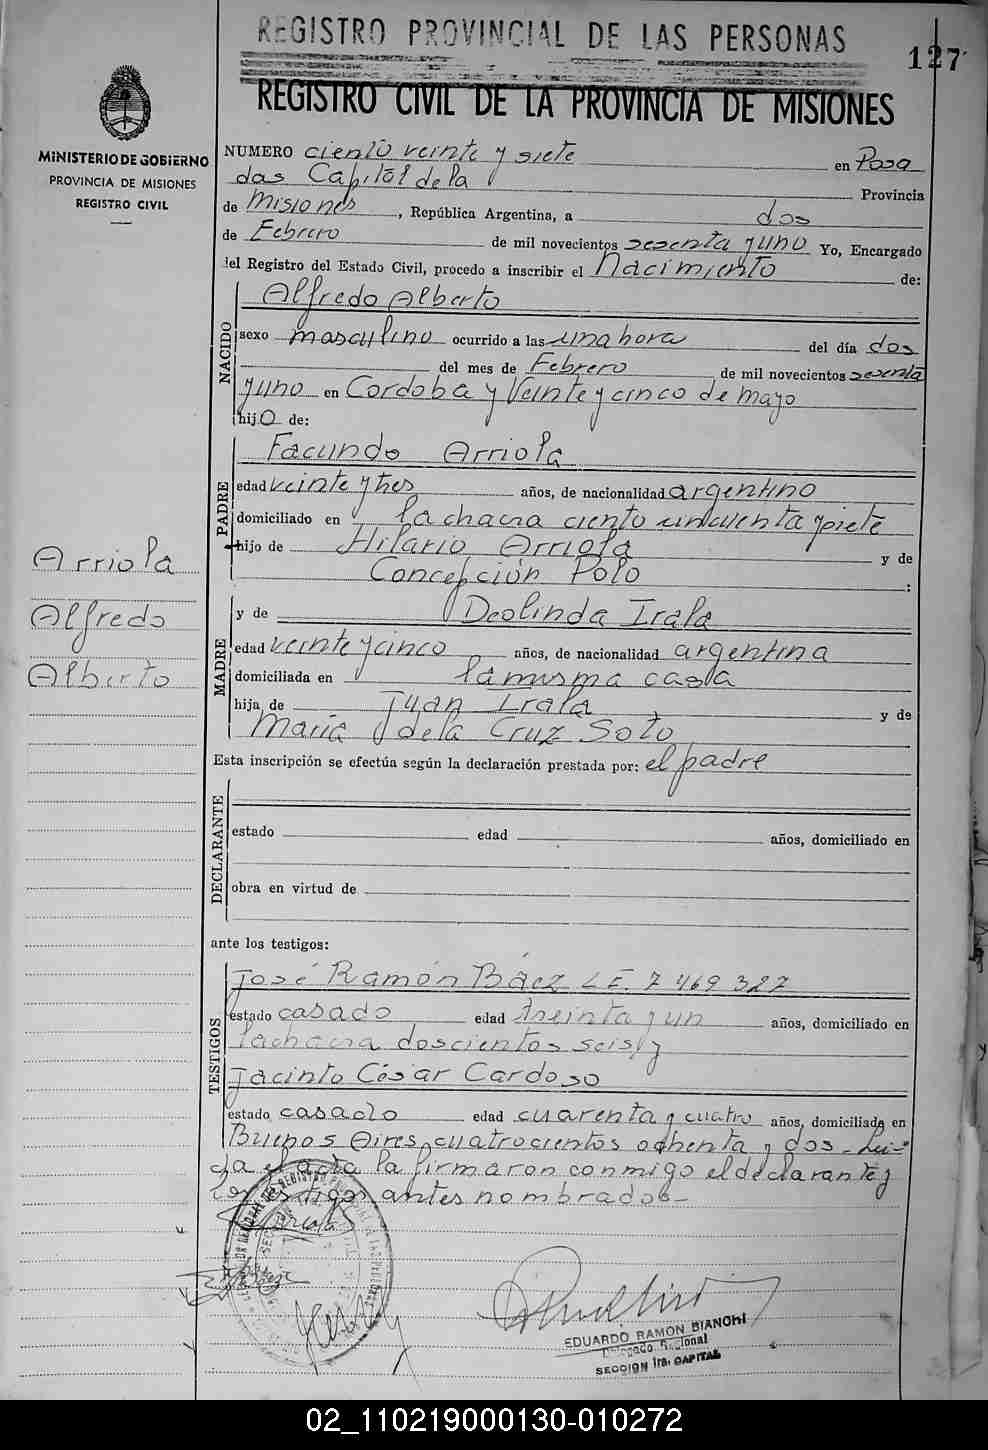 REGISTRO PROVINCIAL DE LAS PERSONAS
127
REGISTRO CIVIL DE LA PROVINCIA DE MISIONES
MINISTERIO DE GOBIERNO
PROVINCIA DE MISIONES
REGISTRO CIVIL
NUMERO ciento veinte y siete en Posa
das Capital de la Provincia
de Misiones, República Argentina, a dos
de Febrero de mil novecientos sesenta y uno Yo, Encargado
del Registro del Estado Civil, procedo a inscribir el Nacimiento de:
Alfredo Alberto
NACIDO
sexo masculino ocurrido a las una hora del día dos
del mes de Febrero de mil novecientos sesenta
y uno en Cordoba y Veinte y cinco de mayo
hijo de:
Facundo Arriola
PADRE
edad veinte y tres años, de nacionalidad argentino
domiciliado en la chacra ciento cincuenta y siete
hijo de Hilario Arriola y de
Concepción Polo :
Arriola
Alfredo
Alberto
y de Deolinda Irala
MADRE
edad veinte y cinco años, de nacionalidad argentina
domiciliada en la misma casa
hija de Juan Irala y de
María de la Cruz Soto
Esta inscripción se efectúa según la declaración prestada por: el padre
DECLARANTE
estado edad años, domiciliado en
obra en virtud de
ante los testigos:
TESTIGOS
José Ramón Báez L E. 7 469 327
estado casado edad treinta y un años, domiciliado en
la chacra doscientos seis y
Jacinto César Cardoso
estado casado edad cuarenta y cuatro años, domiciliado en
Buenos Aires cuatrocientos ochenta y dos - Leí-
da el acta la firmaron conmigo el declarante y
los testigos antes nombrados -
Arriola
EDUARDO RAMON BIANCHI
Delegado Regional
SECCION 1ra. CAPITAL
02_110219000130-010272